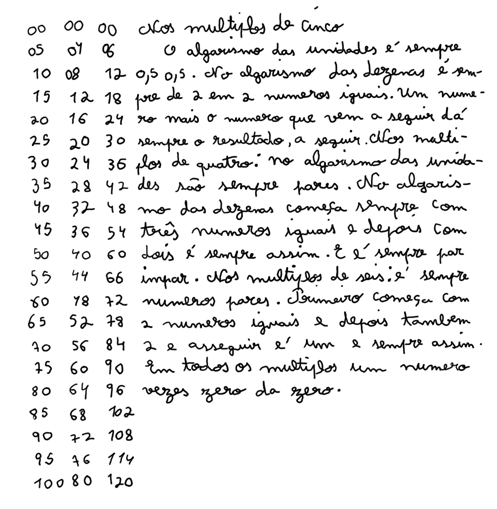 00 00 00 Nos multiplos de cinco
05 04 06 O algarismo das unidades é sempre
10 08 12 0,5 0,5. No algarismo das dezenas é sem-
15 12 18 pre de 2 em 2 numeros iguais. Um nume-
20 16 24 ro mais o numero que vem a seguir dá
25 20 30 sempre o resultado, a seguir. Nos malti-
30 24 36 plos de quatro: no algarismo das unida-
35 28 42 des são sempre pares. No algaris-
40 32 48 mo das dezenas começa sempre com
45 36 54 três numeros iguais e depois com
50 40 60 dois é sempre assim. E é sempre par
55 44 66 impar. Nos multiplos de seis: é sempre
60 48 72 numeros pares. Primeiro começa com
65 52 78 2 numeros iguais e depois tambem
70 56 84 2 e asseguir é um e sempre assim.
75 60 90 Em todos os multiplos um numero
80 64 96 vezes zero da zero.
85 68 102
90 72 108
95 76 114
100 80 120